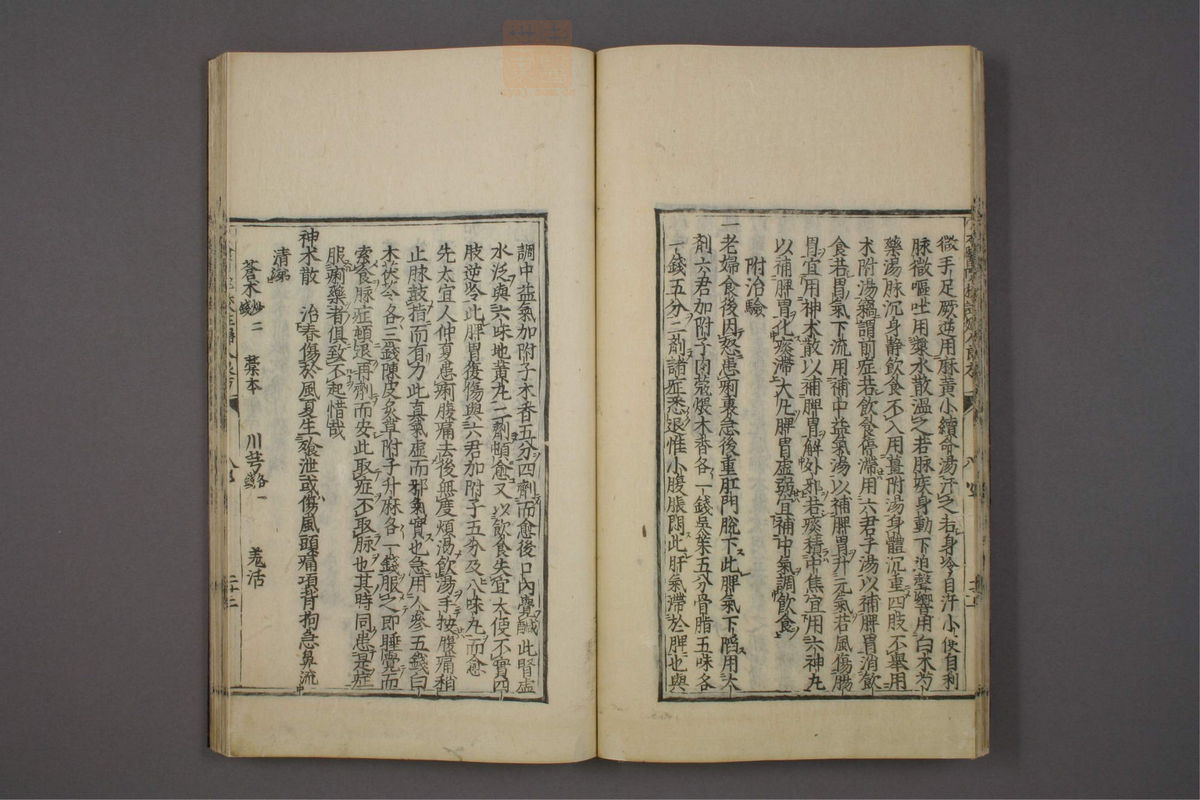 微手足厥逆用麻黄小續命湯汗之若身冷自汗小便自利
脉微嘔吐用漿水散溫之若脉疾身動下迫聲響用白术芍
藥湯脉沉身靜飲食不入用薑附湯身體沉重四肢不舉用
术附湯竊謂前症若飲食停滯用六君子湯以補脾胃消飲
食若胃氣下流用補中益氣湯以補脾胃升元氣若風傷腸
胃宜用神术散以補脾胃解外邪若痰積中焦宜用六神丸
以補脾胃化痰滯大凡脾胃虛弱宜補中氣調飲食
附治驗
一老婦食後因怒患痢裏急後重肛門脫下此脾氣下陷用大
劑六君加附子肉蔻煨木香各一錢吳茱五分骨脂五味各
一錢五分二劑諸症悉退惟小腹脹悶此肝氣滯於脾也與
調中益氣加附子木香五分四劑而愈後口內覺鹹此腎虛
水泛與六味地黃丸二劑頓愈又以飲食失宜大便不實四
肢逆冷此脾胃復傷與六君加附子五分及八味丸而愈
先太宜人仲夏患痢腹痛去後無度煩渴飲湯手按腹痛稍
止脉鼓指而有力此真氣虛而邪氣實也急用人參五錢白
术茯苓各三錢陳皮炙草附子升麻各一錢服之即睡覺而
索食脉症頓退再劑而安此取症不取脉也其時同患是症
服痢藥者俱致不起惜哉
神术散 治春傷於風夏生飱泄或傷風頭痛項背拘急鼻流
清涕
蒼术炒二錢 藁本 川芎各一錢 羌活